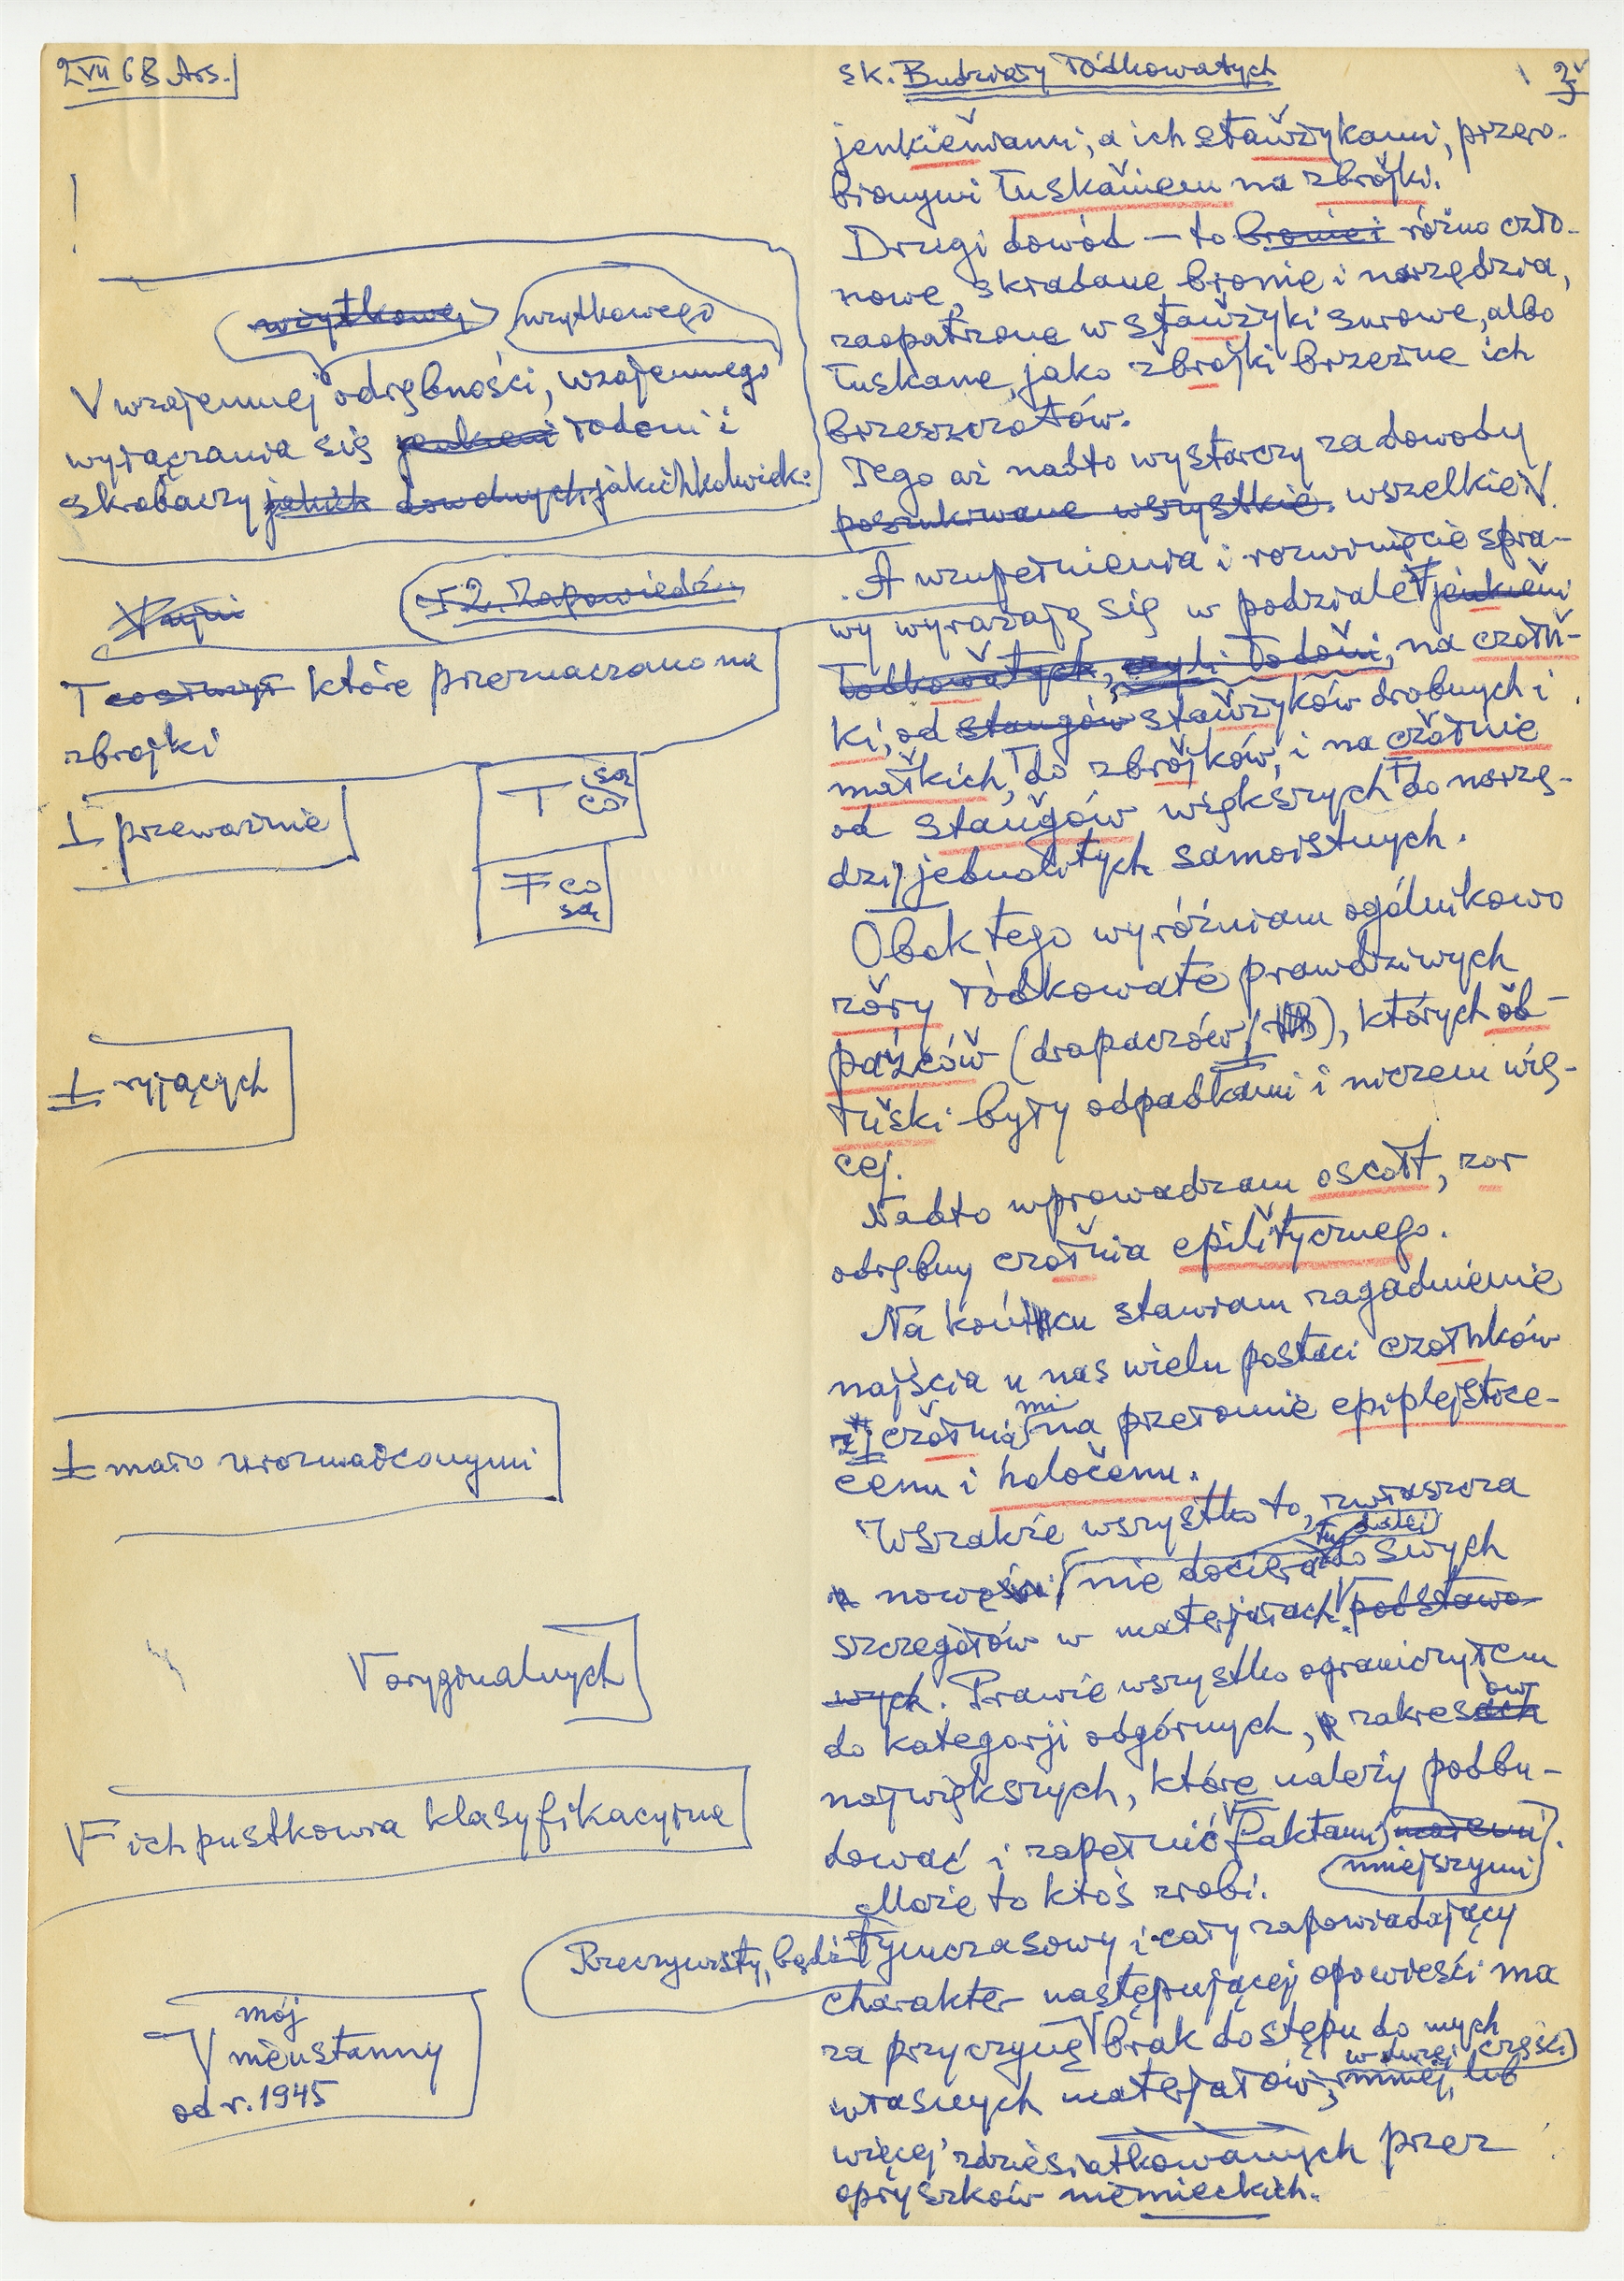 2 VII 68 Ars.
sk. Budziary łódkowatych
2
jenkieńiami, a ich staw̌žykami, przero-
bionymi łuskaňiem na zbrojki.
Drugi dowód — to bronie i różno czło-
nowe, składane bronie i narzędzia,
zaopatrzone w stawžyki surowe, albo
łuskane, jako zbrojki brzeżne ich
brzeszczotów.
Tego aż nadto wystarczy za dowody
poszukiwane wszystkie. wszelkiej V.
A uzupełnienia i rozwinięcie spra-
wy wyrażają się w podziale jenkieni
łodkowatych, czyli łodoni, na czołň-
ki, od stangów stawžyków drobnych i
małkich, T do zbrojków, i na czołnie
od staňgów większych do narzę-
dzi jednolitych samoistnych.
Obok tego wyróżniam ogólnikowo
zořy łódkowate prawdziwych
pažców (drapaczów), których ob-
łuški były odpadkami i niczem wię-
cej.
Nadto wprowadzam oscott, zor
odrębny czołnia epilitycznego.
Na końcu stawiam zagadnienie
najścia u nas wielu postaci czołnków
z czołniami na przełomie epiplejstoce-
cenu i holočenu.
Wszakże wszystko to, zwłaszcza
nowości nie dociera tu dalej do swych
szczegółów w materjałach podstawo-
wych. Prawie wszystko ograniczyłem
do kategorji odgórnych, zakresów
największych, które należy podbu-
dować i zapełnić V faktami małemi
mniejszymi.
Może to ktoś zrobi.
Rzeczywisty, bądź tymczasowy i cały zapowiadający
charakter następującej opowieści ma
za przyczynę V brak dostępu do mych
własnych materjałów, w dużej części
mniej, lub
więcej zdziesiątkowanych przez
opryszków niemieckich.
użytkowej użytkowego
V wzajemnej odrębności, wzajemnego
wyłączania się jenkieni łodoni i
skrobaczy jakich dowolnych jakichkolwiek:
§ 2. Zapowiedzi
T które przeznaczano na
zbrojki
⊥ przeważnie
T co są
F co
są
⊥ ryjących
⊥ mało urozmaiconymi
V oryginalnych
F ich pustkowia klasyfikacyjne
mój
V nieustanny
od r. 1945